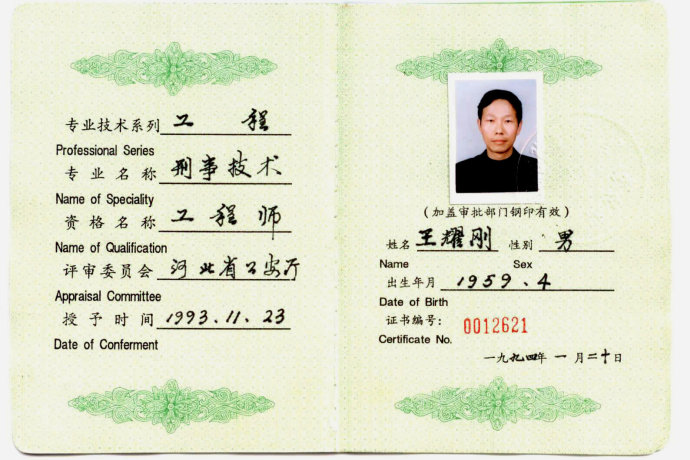 专业技术系列 工 程
Professional Series
专业名称 刑事技术
Name of Speciality
资格名称 工程师
Name of Qualification
评审委员会 河北省公安厅
Appraisal Committee
授予时间 1993.11.23
Date of Conferment
(加盖审批部门钢印有效)
姓名 王耀刚 性别 男
Name Sex
出生年月 1959.4
Date of Birth
证书编号: 0012621
Certificate No.
一九九四年一月二十日